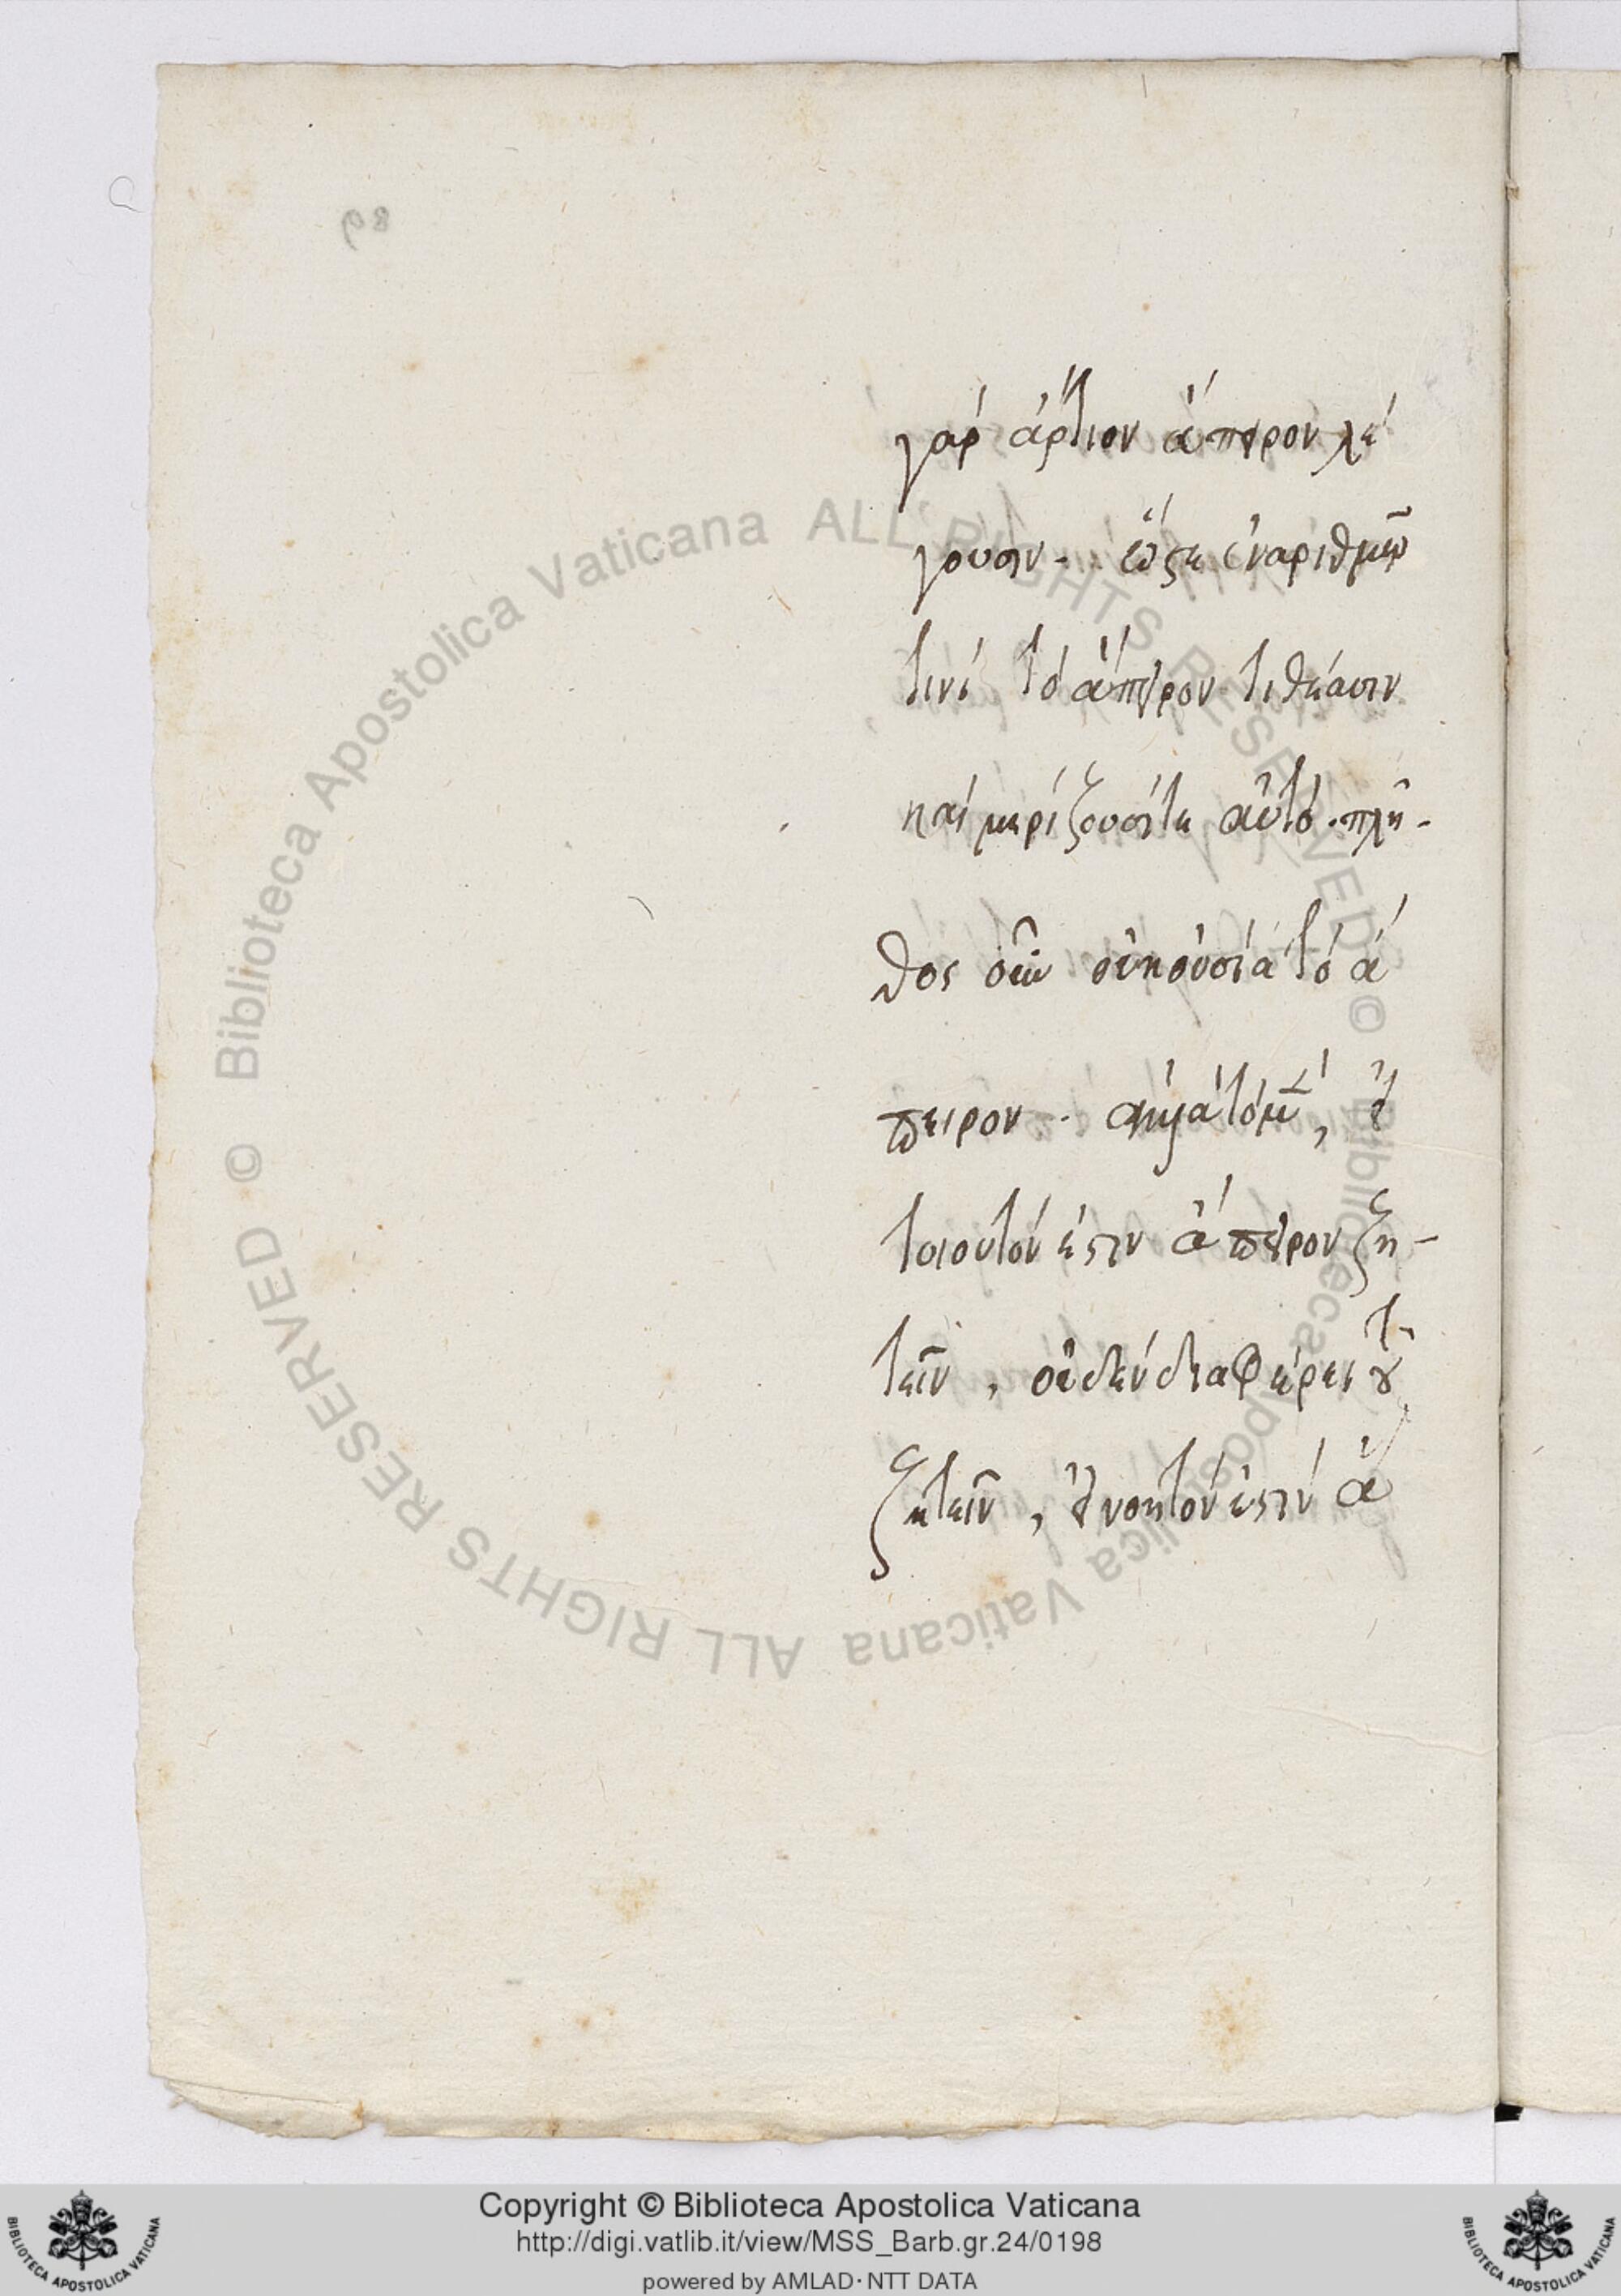 γαρ άρτιον άπειρον λέ
γουσιν . ώςε έναριθμῶ
τινί τό άπειρον τιθέασιν
καί μερίζουσίτε αὐτό . πλῆ-
θος οὖν οὐκουσία τό ά
πειρον .
τοιουτόν εστιν άπειρον ζη-
τεῖν , οὐδέν διαφέρει
ζητεῖν , εἰ νοητόν εστίν ά
89
Biblioteca Apostolica Vaticana ALL RIGHTS RESERVED ©
Biblioteca Apostolica Vaticana ALL RIGHTS RESERVED ©
Copyright © Biblioteca Apostolica Vaticana
http://digi.vatlib.it/view/MSS_Barb.gr.24/0198
powered by AMLAD·NTT DATA
BIBLIOTECA APOSTOLICA VATICANA
BIBLIOTECA APOSTOLICA VATICANA